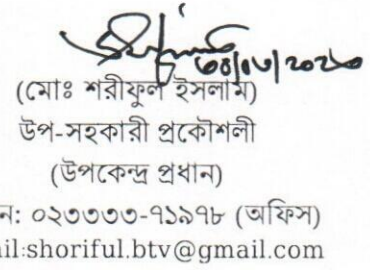 (মোঃ শরীফুল ইসলাম)
উপ-সহকারী প্রকৌশলী
(উপকেন্দ্র প্রধান)
ন: ০২৩৩৩৩-৭১৯৭৮ (অফিস)
ail:shoriful.btv@gmail.com